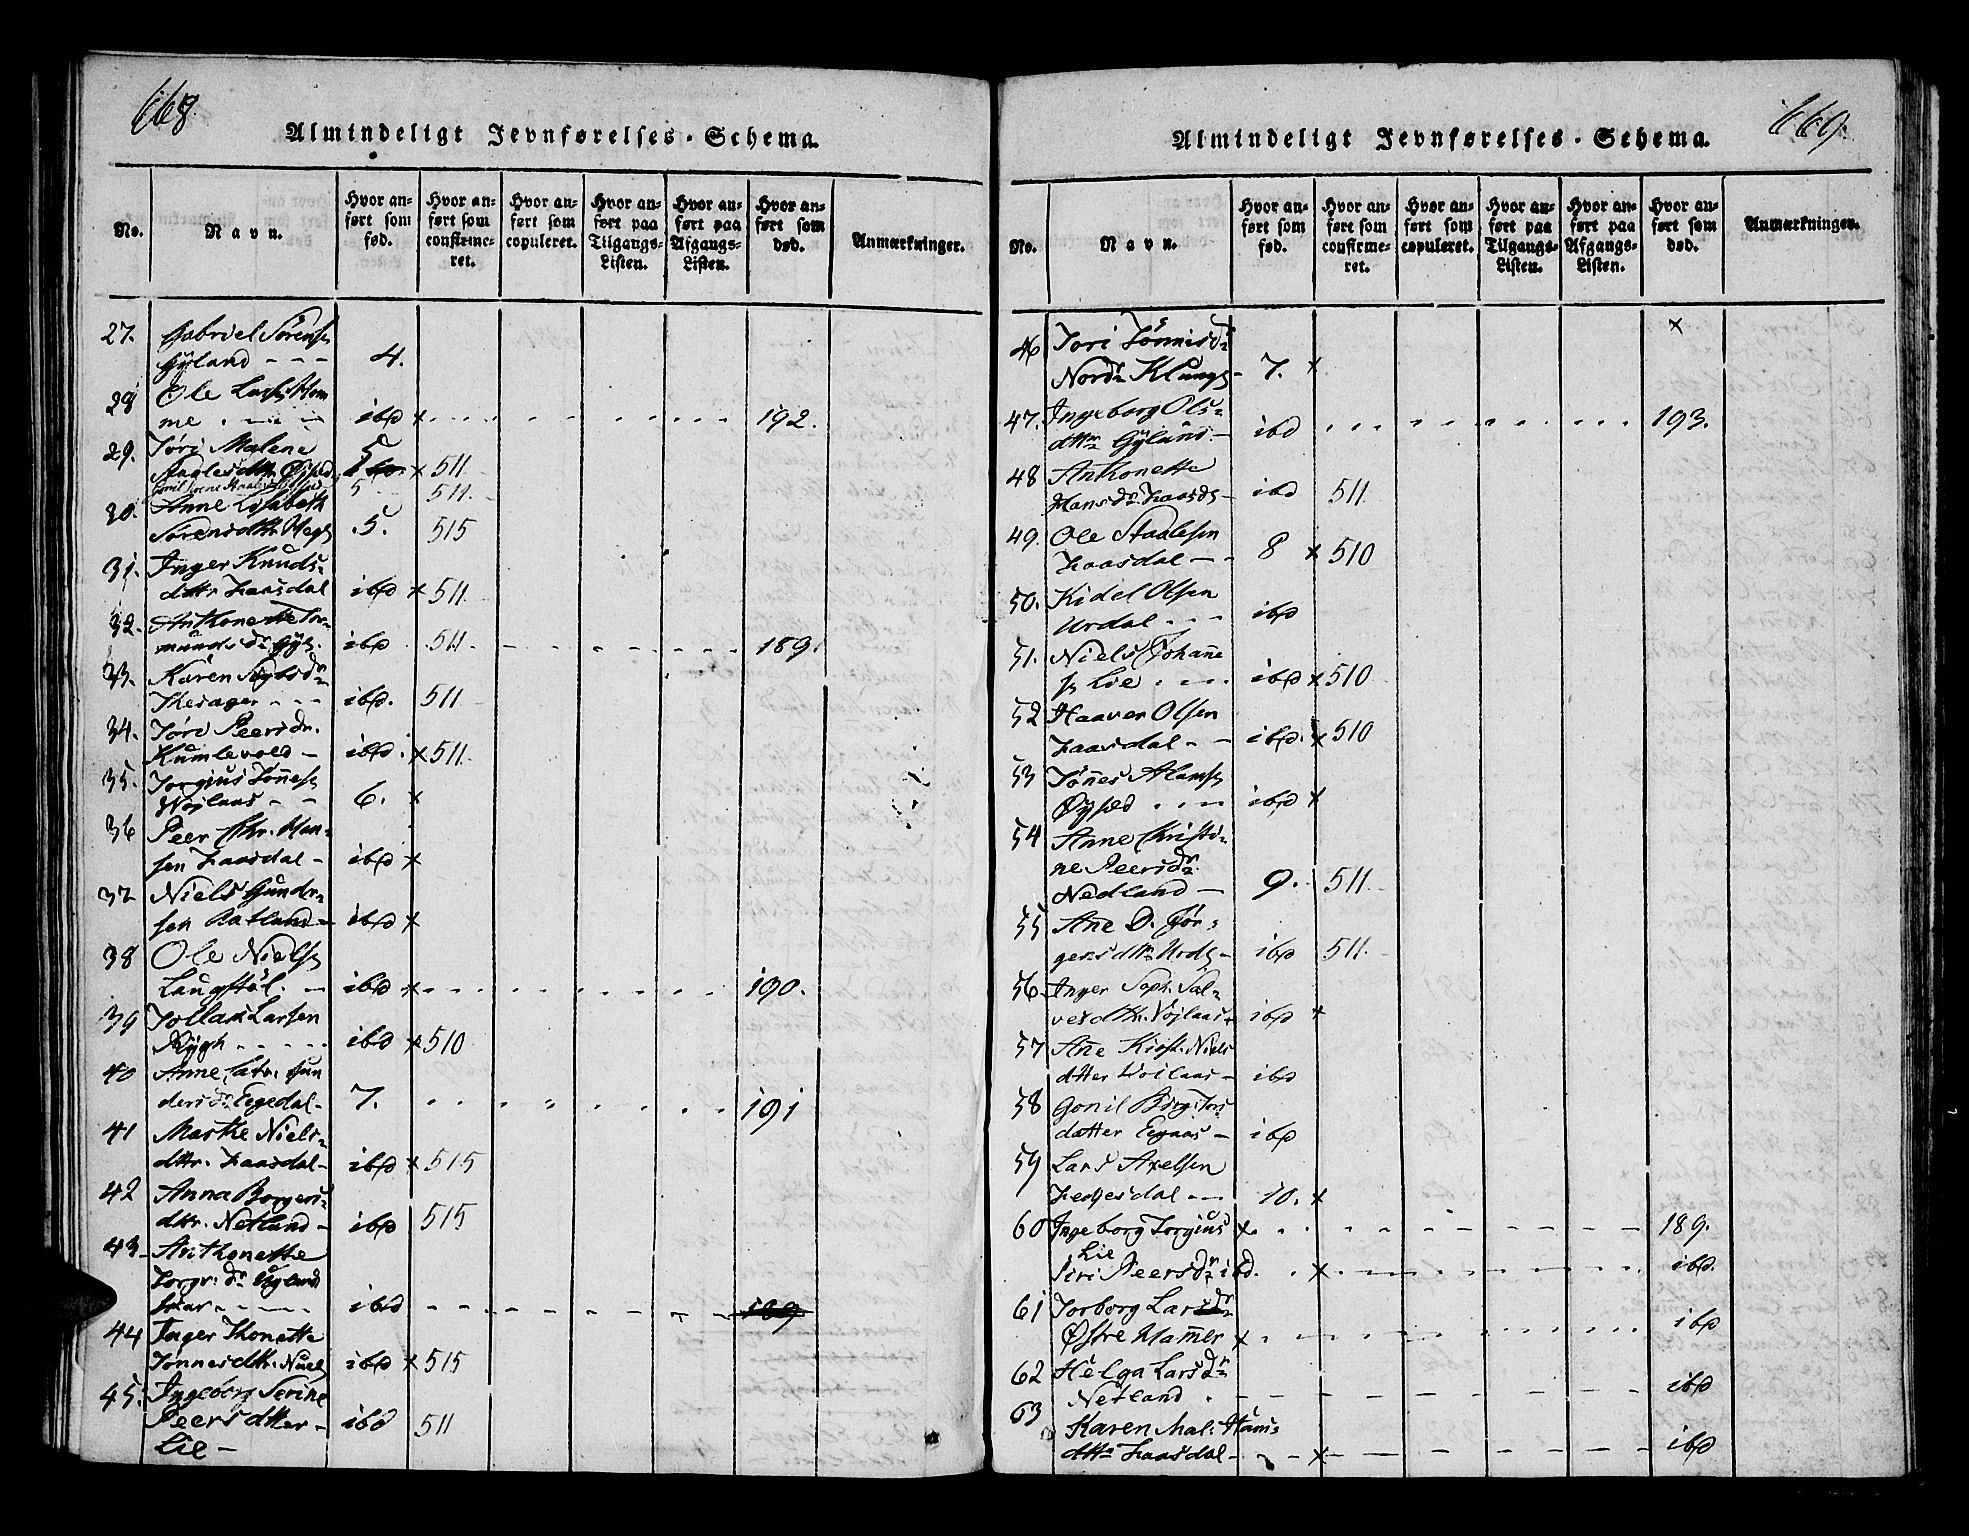 668.
Almindeligt Jevnførelses-Schema.
No.
Navn.
Hvor anført som fød.
Hvor anført som confirmeret.
Hvor anført som copuleret.
Hvor anført paa Tilgangs-Listen.
Hvor anført paa Afgangs-Listen.
Hvor anført som død.
Anmærkninger.
27. Gabriel Sörens
Gÿland - - - 4.
28 Ole Hom
me . - - - ibd x 192.
29. Töri Malene
5 x 511.
5 511.
30. Anne Lisabeth
Sörensdttr 5. 515
31. Inger Knuds-
dttr. Haasdal ibd x 511.
32. Anthonette Tor-
munds dr Gÿl. ibd 511. - - - - 189.
33. Karen dr
- - - ibd. 511
34. Töri Peersdr.
Kumlevold - ibd. x 511.
35. Torgius Tönnes
- - 6. x
36 Peer Chr. Han-
sen Haasdal - ibd x
37 Niels Gunder-
sen - ibd x
38 Ole Niels
Laugstöl. - ibd x - - - - 190.
39 Tollak Larsen
Rÿgh - - - - - ibd x 510
40 Anne Catr. Gun
dersdr Eegedal - 7. - - - - 191
41 Marthe Niels-
dttr. Haasdal - ibd x 515
42 Anna Borgers-
dttr. Netland - ibd 515
43. Anthonette
Torgr. dr
- - - - ibd - - - - 189
44 Inger Thonette
Tönnesdttr. ibd x 515
45. Ingeborg Serine
Peersdtter - ibd 511
Lie -
669.
Almindeligt Jevnførelses-Schema.
No.
Navn.
Hvor anført som fød.
Hvor anført som confirmeret.
Hvor anført som copuleret.
Hvor anført paa Tilgangs-Listen.
Hvor anført paa Afgangs-Listen.
Hvor anført som død.
Anmærkninger.
x
46 Tori Tönnisdr
Nordr - 7. x
47. Ingeborg Ols-
dttr Gÿland - ibd - - - - 193.
48 Anthonette
Hansdr - ibd 511.
49. Ole Staalesen
Haasdal - - 8 x 510
50. Kidel Olsen
Urdal - - - ibd
51. Niels Johanne
s. Lie . - - ibd x 510
52 Haaver Olsen
Haasdal - - ibd. x 510
53 Tönnes
Öysæd . . - ibd x
54 Anne Christi-
ne Peersdr
Nedland - 9. 511.
55 Ane D. Jör-
gensdttr - ibd 511.
56. Inger Soph. Sal-
vesdttr. ibd x
57 Ane Kirst. Niels
dtter - ibd
58 Gonil
datter Egaas - ibd
59 Lars Axelsen
- - 10. x
60 Ingeborg Torgius x - - - - 189.
Lie
Siri Peersdr ibd. . x - - - ibd.
61 Torborg Larsdr
Østre x . - - - - ibd
62 Helga Larsdr
Netland . - - - - ibd
63 Karen Mal. Hans
dttr Haasdal - - x - - - - ibd